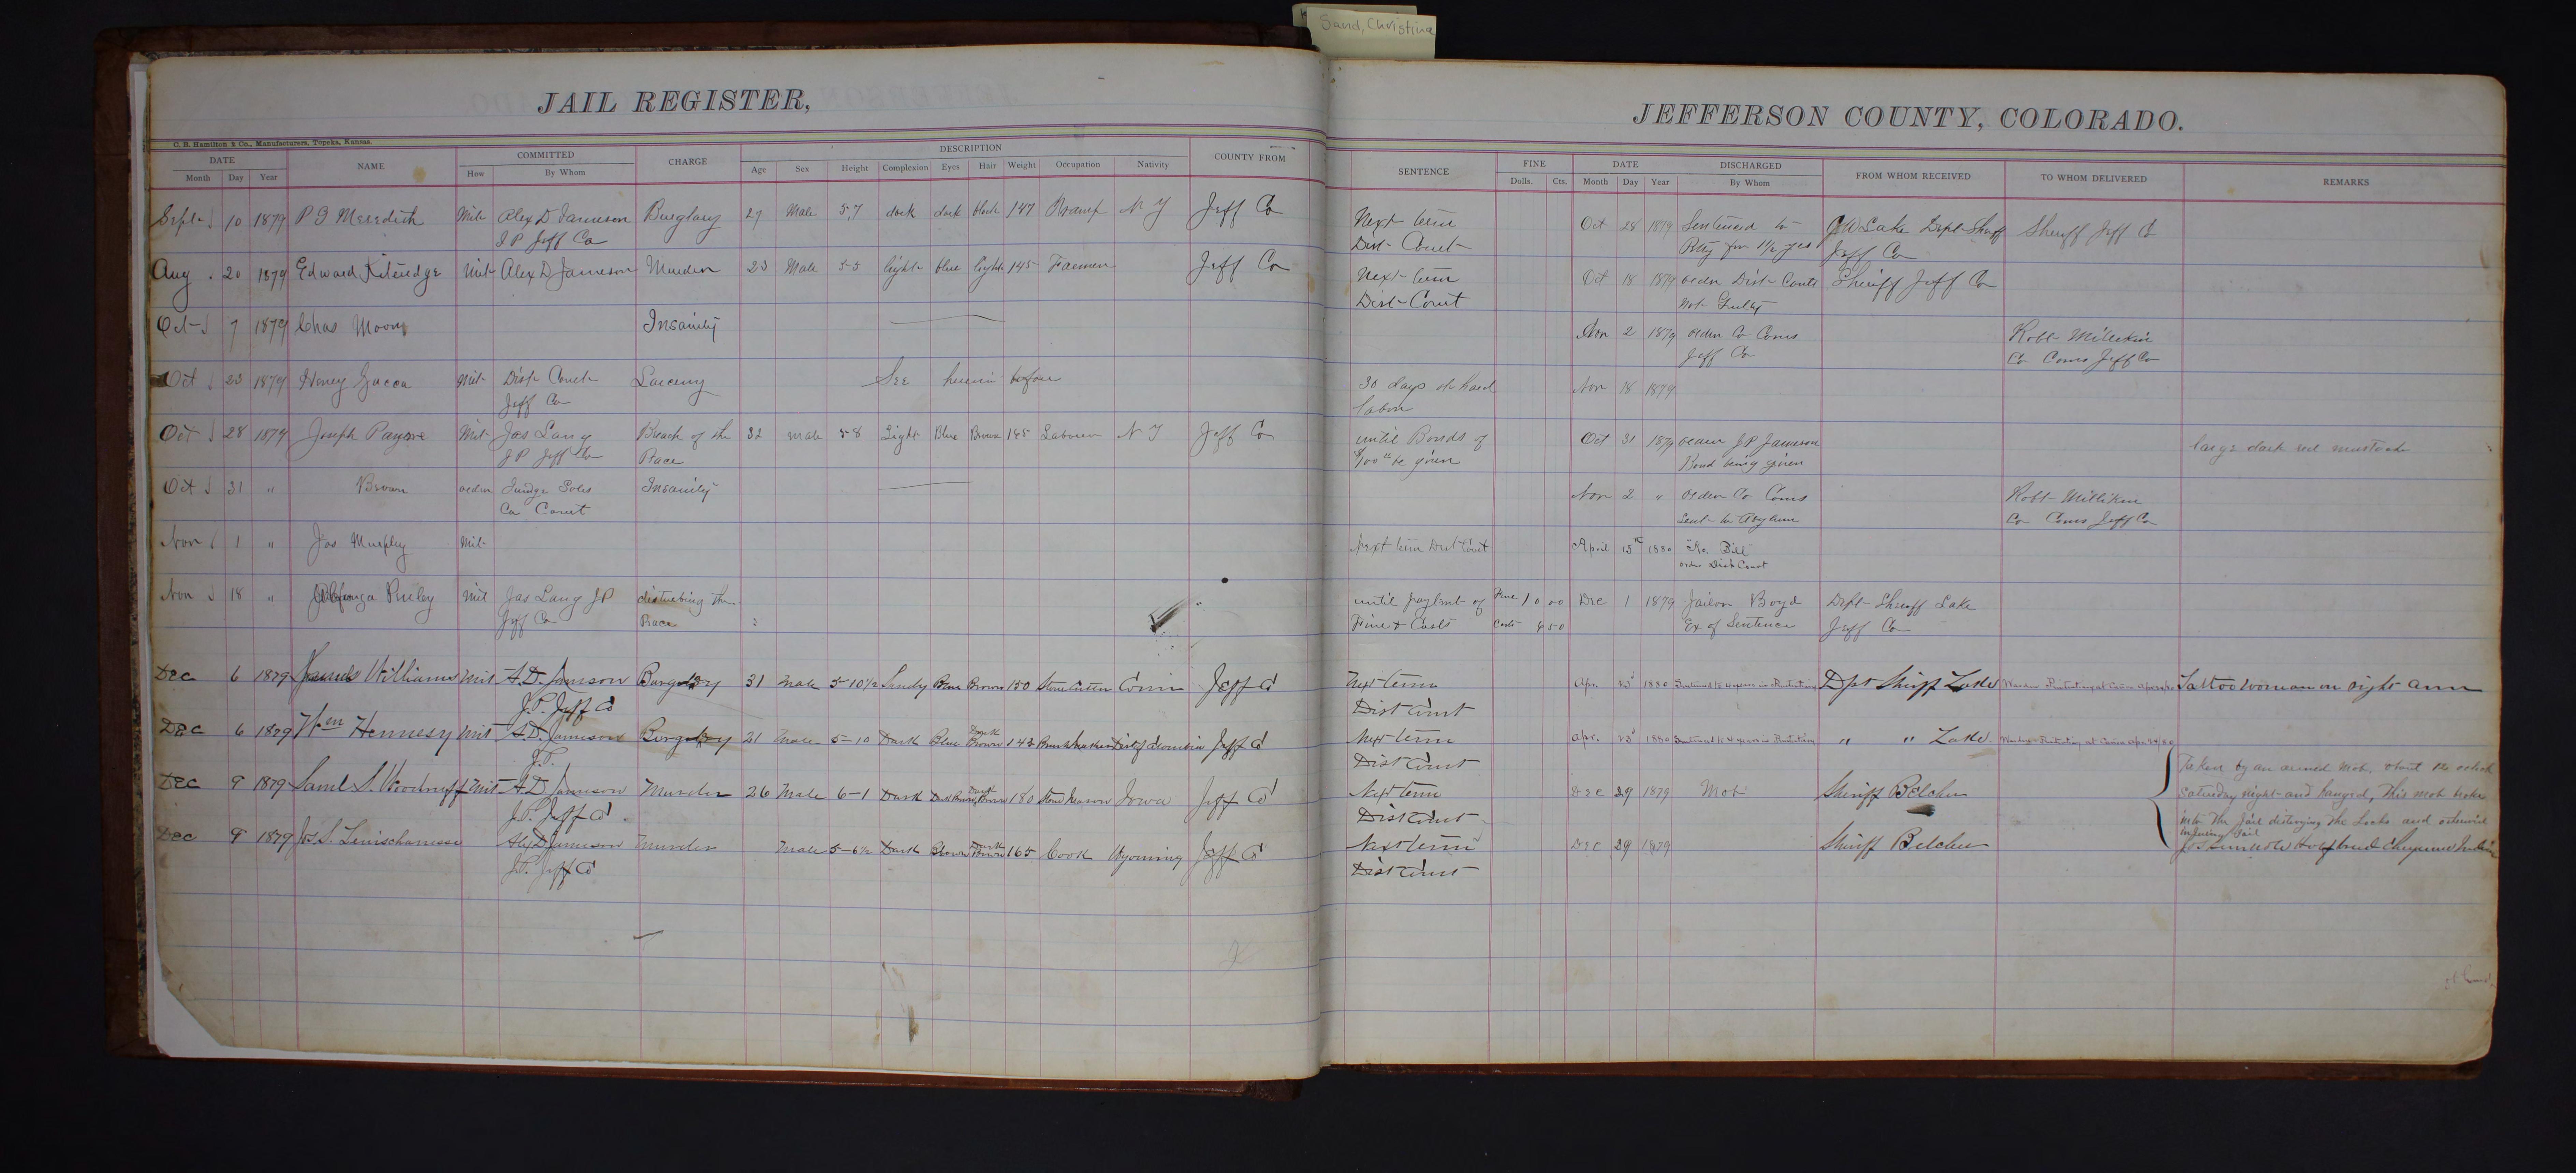 Sand, Christina
JAIL REGISTER,
C. B. Hamilton & Co., Manufacturers, Topeka, Kansas.
DATE NAME COMMITTED CHARGE DESCRIPTION COUNTY FROM
Month Day Year How By Whom Age Sex Height Complexion Eyes Hair Weight Occupation Nativity
Sept 10 1879 P J Meredith Mit Alex D Jameson Burglary 27 Male 5,7 dark dark black 147 N Y Jeff Co
J P Jeff Co
Aug 20 1879 Edward Kitridge Mit Alex D Jameson Murder 23 Male 5-5 light blue light 145 Farmer Jeff Co
Oct 7 1879 Chas Moon Insanity
Oct 23 1879 Henry Mit Dist Court Larceny See herein before
Jeff Co
Oct 28 1879 Joseph Payne Mit Jas Lang Breach of the 32 male 5 8 Light Blue Brown 185 Laborer N Y Jeff Co
J P Jeff Co Peace
Oct 31 " Brown order Judge Insanity
Co Court
Nov 1 " Jas Murphy Mit
Nov 18 " Mit Jas Lang J P disturbing the
Jeff Co Peace
Dec 6 1879 James Williams Mit A.D. Jameson Burglary 31 Male 5-10½ Sandy Blue Brown 150 Stone Cutter Conn Jeff Co
J.P. Jeff Co
Dec 6 1879 Wm Hennesy Mit A.D. Jameson Burglary 21 Male 5-10 Dark Blue Dark Brown 143 Dist of Columbia Jeff Co
J.P.
Dec 9 1879 Saml S. Woodruff Mit A.D. Jameson Murder 26 Male 6-1 Dark Dark Brown Dark Brown 180 Stone Mason Iowa Jeff Co
J.P. Jeff Co
Dec 9 1879 Jos S. Alex D Jameson Murder Male 5-6½ Dark Brown Dark Brown 165 Cook Wyoming Jeff Co
J.P. Jeff Co
JEFFERSON COUNTY, COLORADO.
SENTENCE FINE DATE DISCHARGED FROM WHOM RECEIVED TO WHOM DELIVERED REMARKS
Dolls. Cts. Month Day Year By Whom
Next term Oct 28 1879 Sentenced to J W Lake Dept Sheriff Sheriff Jeff Co
Dist Court for 1½ yrs Jeff Co
Next term Oct 18 1879 order Dist Court Sheriff Jeff Co
Dist Court Not Guilty
Nov 2 1879 order Co Coms Robt Milliken
Jeff Co Co Coms Jeff Co
30 days at hard Nov 18 1879
labor
until Bonds of Oct 31 1879 order J P Jameson large dark red
$100 be given Bond being given
Nov 2 " order Co Coms Robt Milliken
Sent to Asylum Co Coms Jeff Co
Next term Dist Court April 15th 1880 "No Bill"
order Dist Court
until paymt of Fine 10 00 Dec 1 1879 Jailor Boyd Dept Sheriff Lake
Fine & Costs Costs 8 50 Ex of Sentence Jeff Co
Next term Apr. 23d 1880 Dpt Sheriff Lake Tattoo woman on right arm
Dist Court
Next term Apr. 23d 1880 " " Lake
Dist Court
Next term Dec 29 1879 Mob Sheriff Belcher
Dist Court
Taken by an armed mob, about 12 oclock
Saturday night and hanged, This mob broke
into the Jail distroying the Locks and otherwise
injuring Jail
Next term Dec 29 1879 Sheriff Belcher Half breed Cheyenne Indian
Dist Court